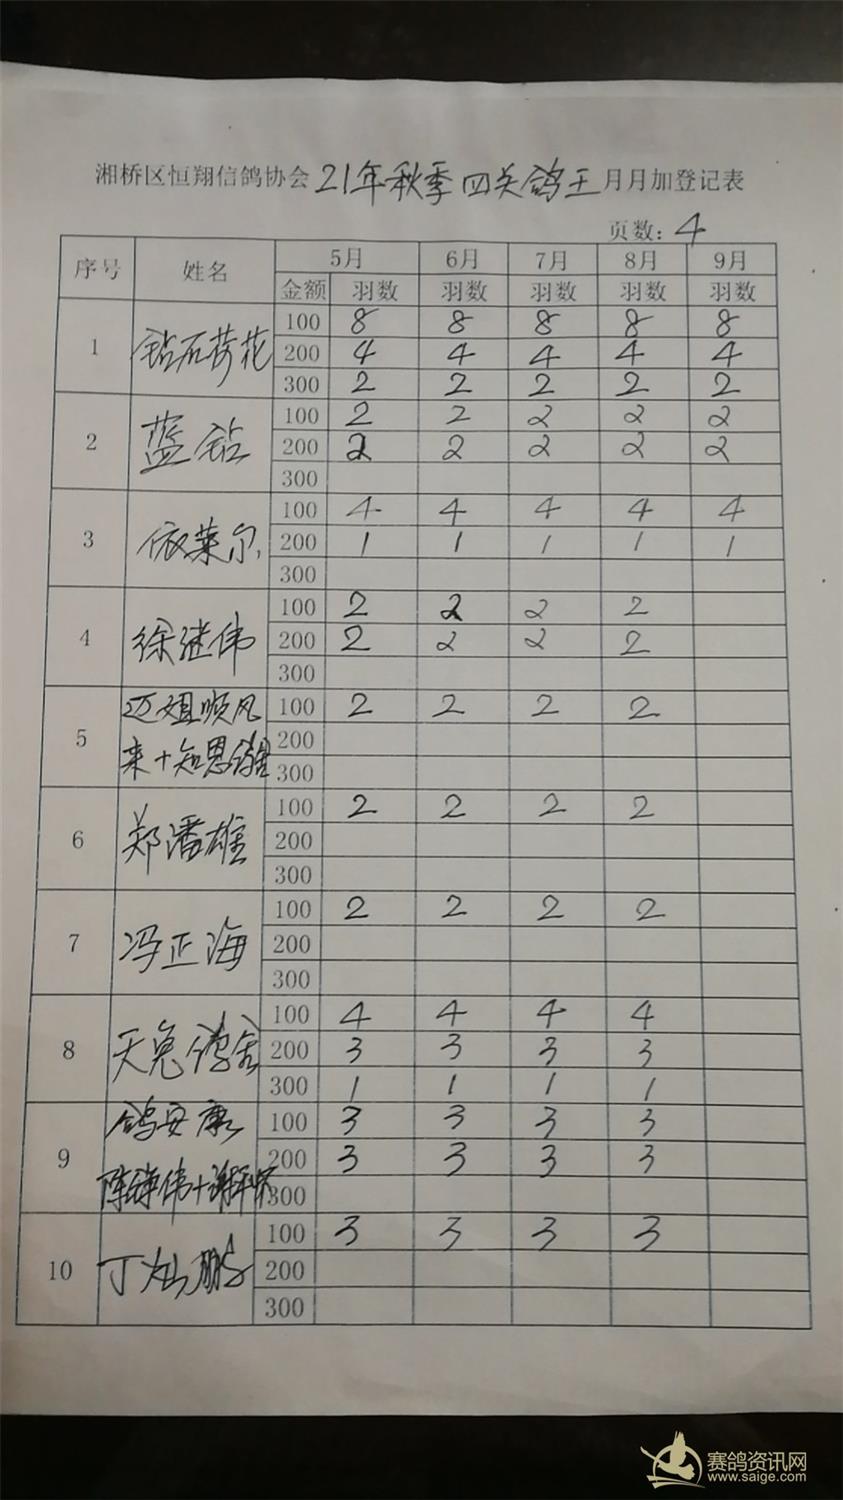 湘桥区恒翔信鸽协会 21年秋季四关鸽王 月月加登记表
页数: 4
序号 姓名 5月 6月 7月 8月 9月
金额 羽数 羽数 羽数 羽数 羽数
1 钻石荷花 100 8 8 8 8 8
200 4 4 4 4 4
300 2 2 2 2 2
2 蓝钻 100 2 2 2 2 2
200 2 2 2 2 2
300
3 依莱尔 100 4 4 4 4 4
200 1 1 1 1 1
300
4 徐继伟 100 2 2 2 2
200 2 2 2 2
300
5 迈姐顺风 100 2 2 2 2
来+知恩鸽舍 200
300
6 郑潘雄 100 2 2 2 2
200
300
7 冯正海 100 2 2 2 2
200
300
8 天兔鸽舍 100 4 4 4 4
200 3 3 3 3
300 1 1 1 1
9 鸽安康 100 3 3 3 3
200 3 3 3 3
伟+谢 300
10 丁灿鹏 100 3 3 3 3
200
300
赛鸽资讯网
www.saige.com